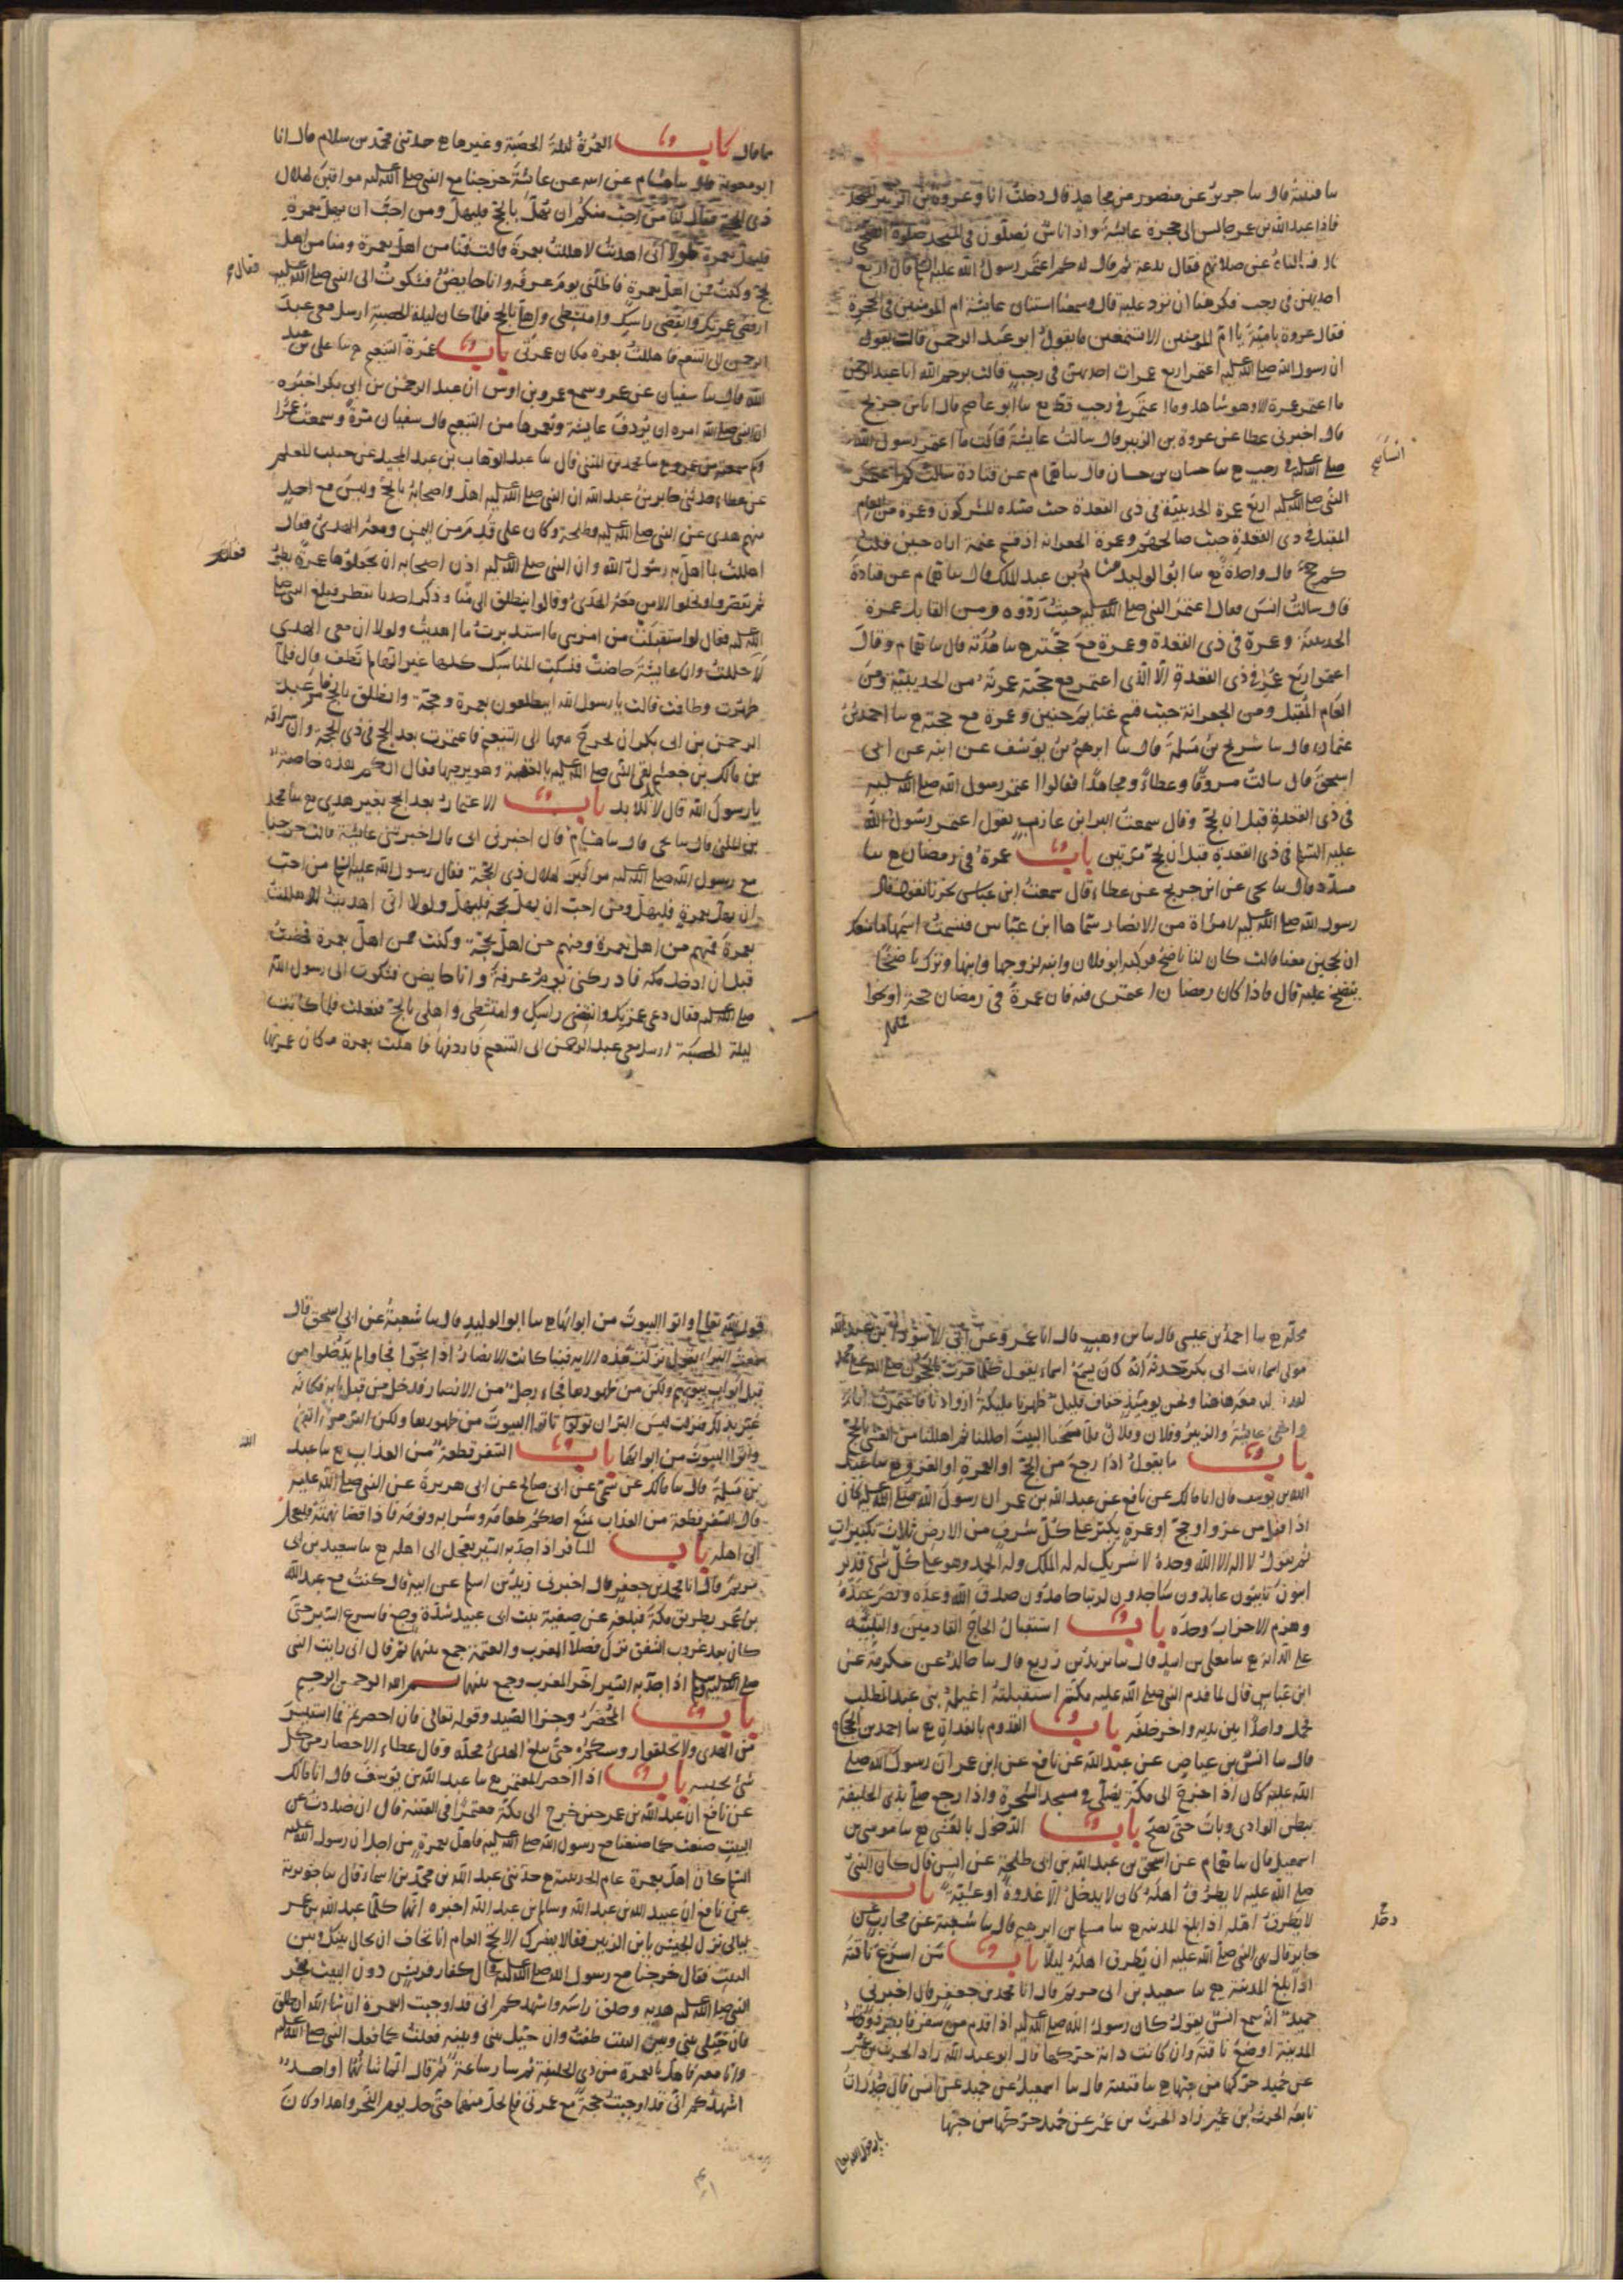 سا قتيبة قال سا جرير عن منصور عن مجاهد قال دخلت انا وعروة بن الزبير المسجد
فاذا عبد الله بن عمر جالس الى حجرة عايشة واذا اناس يصلون في المسجد صلوة الضحى
فسالناه عن صلاتهم فقال بدعة ثم قال له كم اعتمر رسول الله عليه قال اربع
احديهن في رجب فكرهنا ان نرد عليه قال وسمعنا استنان عايشة ام المومنين في الحجرة
فقال عروة يا ام المومنين الا تسمعين ما يقول ابو عبد الرحمن قالت ما يقول
ان رسول الله صلى الله عليه اعتمر اربع عمرات احديهن في رجب قالت يرحم الله ابا عبد الرحمن
ما اعتمر عمرة الا وهو شاهد وما اعتمر في رجب قط ح سا ابو عاصم قال انا بن جريج
قال اخبرني عطا عن عروة بن الزبير قال سالت عايشة قالت ما اعتمر رسول الله
صلى الله عليه في رجب ح سا حسان بن حسان قال سا همام عن قتادة سالت كم اعتمر
النبي صلى الله عليه اربع عمرة الحديبية في ذي القعدة حيث صده المشركون وعمرة من العام
المقبل في ذي القعدة حيث صالحهم وعمرة الجعرانة اذ قسم غنيمة اراه حنين قلت
كم حج قال واحدة ح سا ابو الوليد هشام بن عبد الملك قال سا همام عن قتادة
قال سالت انس فقال اعتمر النبي صلى الله عليه حيث ردوه ومن القابل عمرة
الحديبية وعمرة في ذي القعدة وعمرة مع حجته ح سا هدبة قال سا همام وقال
اعتمر اربع عمر في ذي القعدة الا الذي اعتمر مع حجته عمرته من الحديبية ومن
العام المقبل ومن الجعرانة حيث قسم غنايم حنين وعمرة مع حجته ح سا احمد بن
عثمان قال سا شريح بن مسلمة قال سا ابرهيم بن يوسف عن ابيه عن ابي
اسحق قال سالت مسروقا وعطاء ومجاهدا فقالوا اعتمر رسول الله صلى الله عليه
في ذي القعدة قبل ان يحج وقال سمعت البراء بن عازب يقول اعتمر رسول الله
عليه السلم في ذي القعدة قبل ان يحج مرتين باب عمرة في رمضان ح سا
مسدد قال سا يحيى عن ابن جريج عن عطاء قال سمعت ابن عباس يخبرنا يقول قال
رسول الله صلى الله عليه لامراة من الانصار سماها ابن عباس فنسيت اسمها ما منعك
ان تحجين معنا قالت كان لنا ناضح فركبه ابو فلان وابنه لزوجها وابنها وترك ناضحا
ينضح عليه قال فاذا كان رمضان اعتمري فيه فان عمرة في رمضان حجة او نحوا
مما قال باب العمرة ليلة الحصبة وغيرها ح حدثني محمد بن سلام قال انا
ابو معوية قال سا هشام عن ابيه عن عائشة خرجنا مع النبي صلى الله عليه موافين لهلال
ذي الحجة فقال لنا من احب منكم ان يهل بالحج فليهل ومن احب ان يهل بعمرة
فليهل بعمرة فلولا اني اهديت لاهللت بعمرة قالت فمنا من اهل بعمرة ومنا من اهل
بحج وكنت ممن اهل بعمرة فاظلني يوم عرفة وانا حايض فشكوت الى النبي صلى الله عليه
فقال
ارفضي عمرتك وانقضي راسك وامتشطي واهلي بالحج فلما كان ليلة الحصبة ارسل معي عبد
الرحمن الى التنعيم فاهللت بعمرة مكان عمرتي باب عمرة التنعيم ح سا علي بن عبد
الله قال سا سفيان عن عمرو سمع عمرو بن اوس ان عبد الرحمن بن ابي بكر اخبره
ان النبي صلى الله امره ان يردف عايشة ويعمرها من التنعيم قال سفيان مرة وسمعت عمرا
وكم سمعته من عمرو ح سا محمد بن المثنى قال سا عبد الوهاب بن عبد المجيد عن حبيب المعلم
عن عطاء حدثني جابر بن عبد الله ان النبي صلى الله عليه اهل واصحابه بالحج وليس مع احد
منهم هدي غير النبي صلى الله عليه وطلحة وكان علي قدم من اليمن ومعه الهدي فقال
اهللت بما اهل به رسول الله وان النبي صلى الله عليه اذن اصحابه ان يجعلوها عمرة يطوفوا
ثم يقصروا ويحلوا الا من معه الهدي وقالوا ننطلق الى منا وذكر احدنا يقطر فبلغ النبي صلى
الله عليه فقال لو استقبلت من امري ما استدبرت ما اهديت ولولا ان معي الهدي
لاحللت وان عايشة حاضت فنسكت المناسك كلها غير انها لم تطف قال فلما
طهرت وطافت قالت يا رسول الله اينطلقون بعمرة وحجة وانطلق بالحج فامر عبد
الرحمن بن ابي بكر ان يخرج معها الى التنعيم فاعتمرت بعد الحج في ذي الحجة وان سراقة
بن مالك بن جعشم لقي النبي صلى الله عليه بالعقبة وهو يرميها فقال الكم هذه خاصة
يا رسول الله قال لا بل للابد باب الاعتمار بعد الحج بغير هدي ح سا محمد
بن المثنى قال سا يحيى قال سا هشام قال اخبرني ابي قال اخبرتني عايشة قالت خرجنا
مع رسول الله صلى الله عليه موافين لهلال ذي الحجة فقال رسول الله عليه السلم من احب
ان يهل بعمرة فليهل ومن احب ان يهل بحجة فليهل ولولا اني اهديت لاهللت
بعمرة فمنهم من اهل بعمرة ومنهم من اهل بحجة وكنت ممن اهل بعمرة فحضت
قبل ان ادخل مكة فادركني يوم عرفة وانا حايض فشكوت الى رسول الله
صلى الله عليه فقال دعي عمرتك وانقضي راسك وامتشطي واهلي بالحج ففعلت فلما كانت
ليلة الحصبة ارسل معي عبد الرحمن الى التنعيم فاردفها فاهلت بعمرة مكان عمرتها
محلتهم ح سا احمد بن عيسى قال سا بن وهب قال انا عمرو عن ابي الاسود ان عبد الله
مولى اسماء بنت ابي بكر حدثه انه كان يسمع اسماء يقول كلما مرت بالحجون صلى الله على محمد
لقد نزلنا معه هاهنا ونحن يومئذ خفاف قليل ظهرنا قليلة ازوادنا فاعتمرت انا
واختي عايشة والزبير وفلان وفلان فلما مسحنا البيت احللنا ثم اهللنا من العشي بالحج
باب ما يقول اذا رجع من الحج او العمرة او الغزو ح سا عبد
الله بن يوسف قال انا مالك عن نافع عن عبد الله بن عمر ان رسول الله صلى الله عليه كان
اذا قفل من غزو او حج او عمرة يكبر على كل شرف من الارض ثلاث تكبيرات
ثم يقول لا اله الا الله وحده لا شريك له له الملك وله الحمد وهو على كل شئ قدير
ايبون تايبون عابدون ساجدون لربنا حامدون صدق الله وعده ونصر عبده
وهزم الاحزاب وحده باب استقبال الحاج القادمين والثلثة
على الدابة ح سا معلى بن اسد قال سا يزيد بن زريع قال سا خالد عن عكرمة عن
ابن عباس قال لما قدم النبي صلى الله عليه مكة استقبلته اغيلمة بني عبد المطلب
فحمل واحدا بين يديه واخر خلفه باب القدوم بالغداة ح سا احمد بن الحجاج
قال سا انس بن عياض عن عبيد الله عن نافع عن ابن عمر ان رسول الله صلى
الله عليه كان اذا خرج الى مكة يصلي في مسجد الشجرة واذا رجع صلى بذي الحليفة
ببطن الوادي وبات حتى يصبح باب الدخول بالعشي ح سا موسى بن
اسمعيل قال سا همام عن اسحق بن عبد الله بن ابي طلحة عن انس قال كان النبي
صلى الله عليه لا يطرق اهله كان لا يدخل الا غدوة او عشية باب
لا يطرق اهله اذا بلغ المدينة ح سا مسلم بن ابرهيم قال سا شعبة عن محارب عن
جابر قال نهى النبي صلى الله عليه ان يطرق اهله ليلا باب من اسرع ناقته
اذا بلغ المدينة ح سا سعيد بن ابي مريم قال انا محمد بن جعفر قال اخبرني
حميد انه سمع انس يقول كان رسول الله صلى الله عليه اذا قدم من سفر فابصر
المدينة اوضع ناقته وان كانت دابة حركها قال ابو عبد الله زاد الحرث بن عمير
عن حميد حركها من حبها ح سا قتيبة قال سا اسمعيل عن حميد عن انس قال جدرات
تابعه الحرث بن عمير زاد الحرث بن عمير عن حميد حركها من حبها
باب قول الله تعالى
قول الله تعالى واتوا البيوت من ابوابها ح سا ابو الوليد قال سا شعبة عن ابي اسحق قال
سمعت البراء يقول نزلت هذه الاية فينا كانت الانصار اذا حجوا فجاوا لم يدخلوا من
قبل ابواب بيوتهم ولكن من ظهورها فجاء رجل من الانصار فدخل من قبل بابه فكانه
عير بذلك فنزلت ليس البر ان تاتوا البيوت من ظهورها ولكن البر من اتقى
واتوا البيوت من ابوابها باب السفر قطعة من العذاب ح سا عبد
الله
بن مسلمة قال سا مالك عن سمي عن ابي صالح عن ابي هريرة عن النبي صلى الله عليه
قال السفر قطعة من العذاب يمنع احدكم طعامه وشرابه ونومه فاذا قضا نهمته فليعجل
الى اهله باب المسافر اذا جد به السير يعجل الى اهله ح سا سعيد بن ابي
مريم قال انا محمد بن جعفر قال اخبرني زيد بن اسلم عن ابيه قال كنت مع عبد الله
بن عمر بطريق مكة فبلغه عن صفية بنت ابي عبيد شدة وجع فاسرع السير حتى
كان بعد غروب الشفق نزل فصلا المغرب والعتمة جمع بينهما ثم قال اني رايت النبي
صلى الله عليه وسلم اذا جد به السير اخر المغرب وجمع بينهما بسم الله الرحمن الرحيم
باب المحصر وجزا الصيد وقوله تعالى فان احصرتم فما استيسر
من الهدي ولا تحلقوا روسكم حتى يبلغ الهدي محله وقال عطاء الاحصار من كل
شئ يحبسه باب اذا احصر المعتمر ح سا عبد الله بن يوسف قال انا مالك
عن نافع ان عبد الله بن عمر حين خرج الى مكة معتمرا في الفتنة قال ان صددت عن
البيت صنعت كما صنعنا مع رسول الله صلى الله عليه فاهل بعمرة من اجل ان رسول الله عليه
السلم كان اهل بعمرة عام الحديبية ح حدثني عبد الله بن محمد بن اسماء قال سا جويرية
عن نافع ان عبيد الله بن عبد الله وسالم بن عبد الله اخبره انهما كلما عبد الله بن عمر
ليالي نزل الجيش بابن الزبير فقالا لا يضرك الا تحج العام انا نخاف ان يحال بينك وبين
البيت فقال خرجنا مع رسول الله صلى الله عليه فحال كفار قريش دون البيت فنحر
النبي صلى الله عليه هديه وحلق راسه واشهدكم اني قد اوجبت العمرة ان شا الله انطلق
فان خلي بيني وبين البيت طفت وان حيل بيني وبينه فعلت كما فعل النبي صلى الله عليه
وانا معه فاهل بالعمرة من ذي الحليفة ثم سار ساعة ثم قال انما شانهما واحد
اشهدكم اني قد اوجبت حجة مع عمرتي فلم يحل منهما حتى حل يوم النحر واهدا وكان